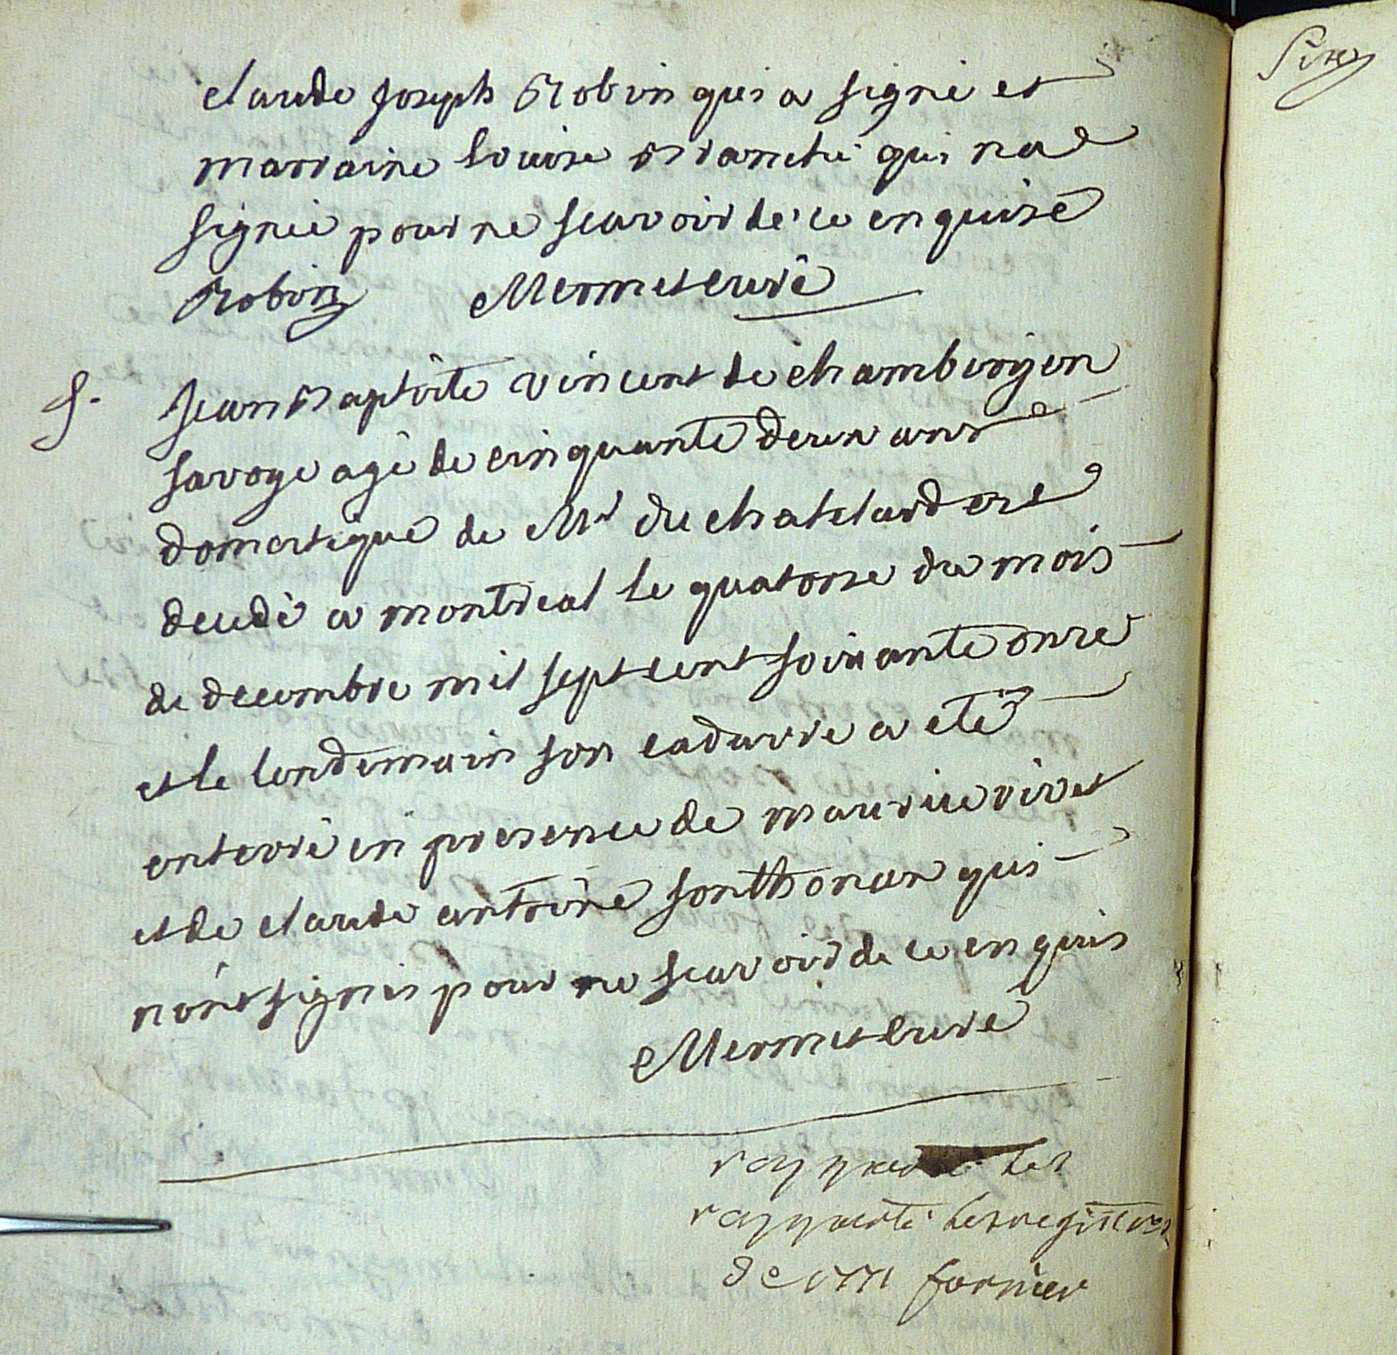 claude joseph Robin qui a signé et
marraine louise Branché qui na
signée pour ne scavoir de ce enquise
Robin Mermet curé
S. Jean Baptiste vincent de chambery en
savoye agé de cinquante deux ans
domestique de Mr du chatelard est
decedé a montreal le quatorse du mois
de decembre mil sept cent soixante onze
et le lendemain son cadavre a eté
enterré en presence de maurice vivet
et de claude antoine sonthonax qui
nont signés pour ne scavoir de ce enquis
Mermet curé
rapporté les
rapporté les registres
de